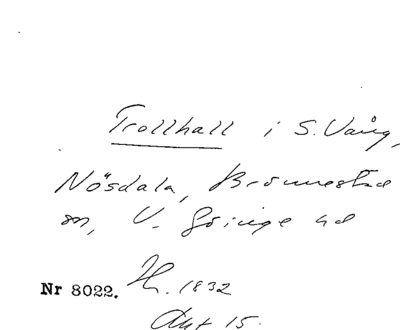 Trollhall i S. Vång,
Nösdala, Brönnestad
sn, V. Göinge hd
Nr 8022. H. 1832
Akt 15.